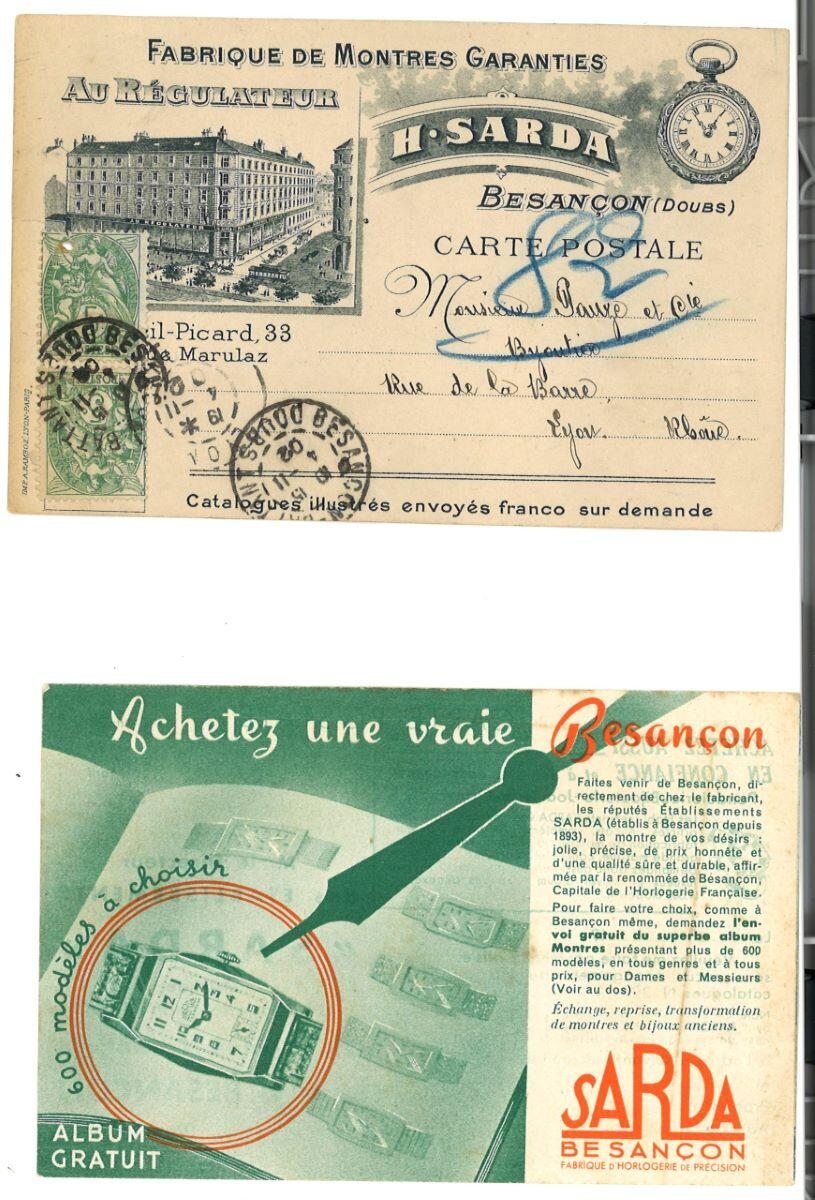 FABRIQUE DE MONTRES GARANTIES
AU RÉGULATEUR
H. SARDA
BESANÇON (DOUBS)
CARTE POSTALE
82
Monsieur Pauze et Cie
Bijoutier
Rue de la Barre
Lyon. Rhône.
il-Picard, 33
Marulaz
BESANÇON
DOUBS
BATTANT
BESANÇON
DOUBS
Catalogues illustrés envoyés franco sur demande
Achetez une vraie Besançon
Faites venir de Besançon, di-
rectement de chez le fabricant,
les réputés Établissements
SARDA (établis à Besançon depuis
1893), la montre de vos désirs :
jolie, précise, de prix honnête et
d'une qualité sûre et durable, affir-
mée par la renommée de Besançon,
Capitale de l'Horlogerie Française.
Pour faire votre choix, comme à
Besançon même, demandez l'en-
voi gratuit du superbe album
Montres présentant plus de 600
modèles, en tous genres et à tous
prix, pour Dames et Messieurs
(Voir au dos).
Échange, reprise, transformation
de montres et bijoux anciens.
600 modèles à choisir
ALBUM
GRATUIT
SARDA
BESANÇON
FABRIQUE D'HORLOGERIE DE PRÉCISION